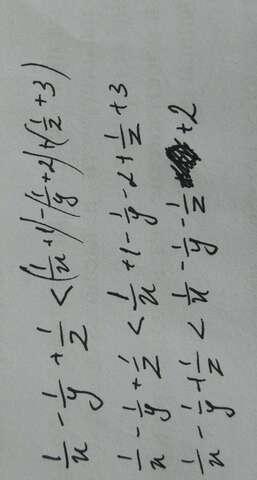 1/x - 1/y + 1/z < (1/x + 1) - (1/y + 2) + (1/z + 3)
1/x - 1/y + 1/z < 1/x + 1 - 1/y - 2 + 1/z + 3
1/x - 1/y + 1/z < 1/x - 1/y - 1/z + 2